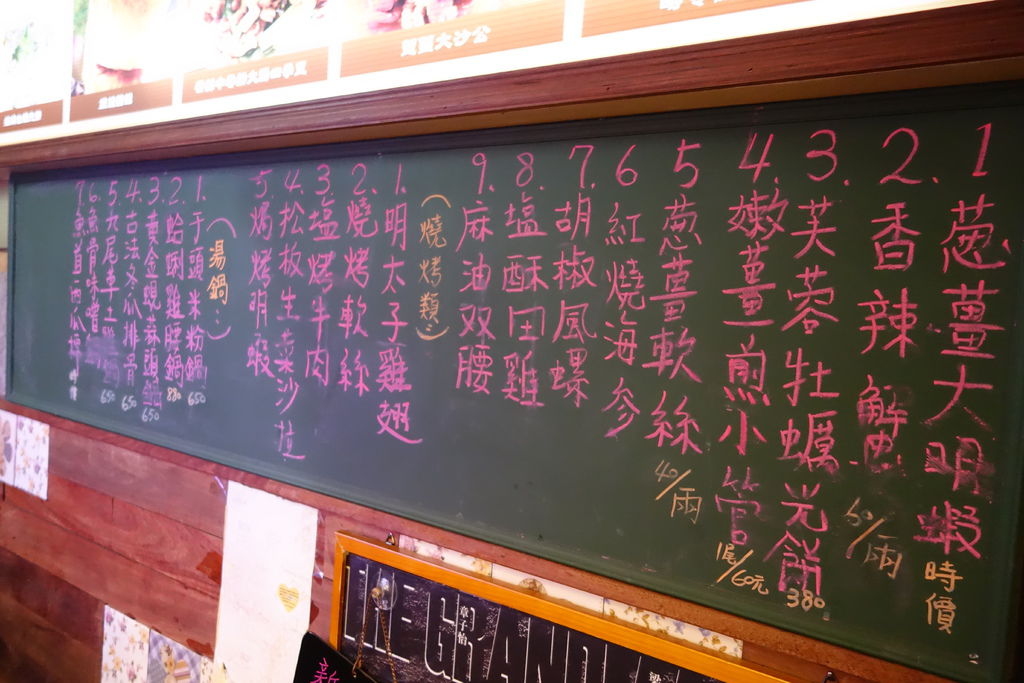 1 葱薑大明蝦 時價
2. 香辣解忠 60/兩
3. 芙蓉牡蠣光餅 380
4. 嫩薑煎小管 1尾/60元
5 葱薑軟絲 40/兩
6 紅燒海參
7. 胡椒風螺
8. 塩酥田雞
9. 麻油双腰
(燒烤類:)
1. 明太子雞翅
2. 燒烤軟絲
3. 塩烤牛肉
4. 松板生菜沙拉
5 焗烤明蝦
(湯鍋:)
1. 芋頭米粉鍋 650
2. 蛤蜊雞腰鍋 880
3. 黄金蜆蒜頭鍋 650
4. 古法冬瓜排骨 650
5. 650
6. 魚骨味噌
7. 時價
公沙大圓
THE GRAND
章子怡
梁
新